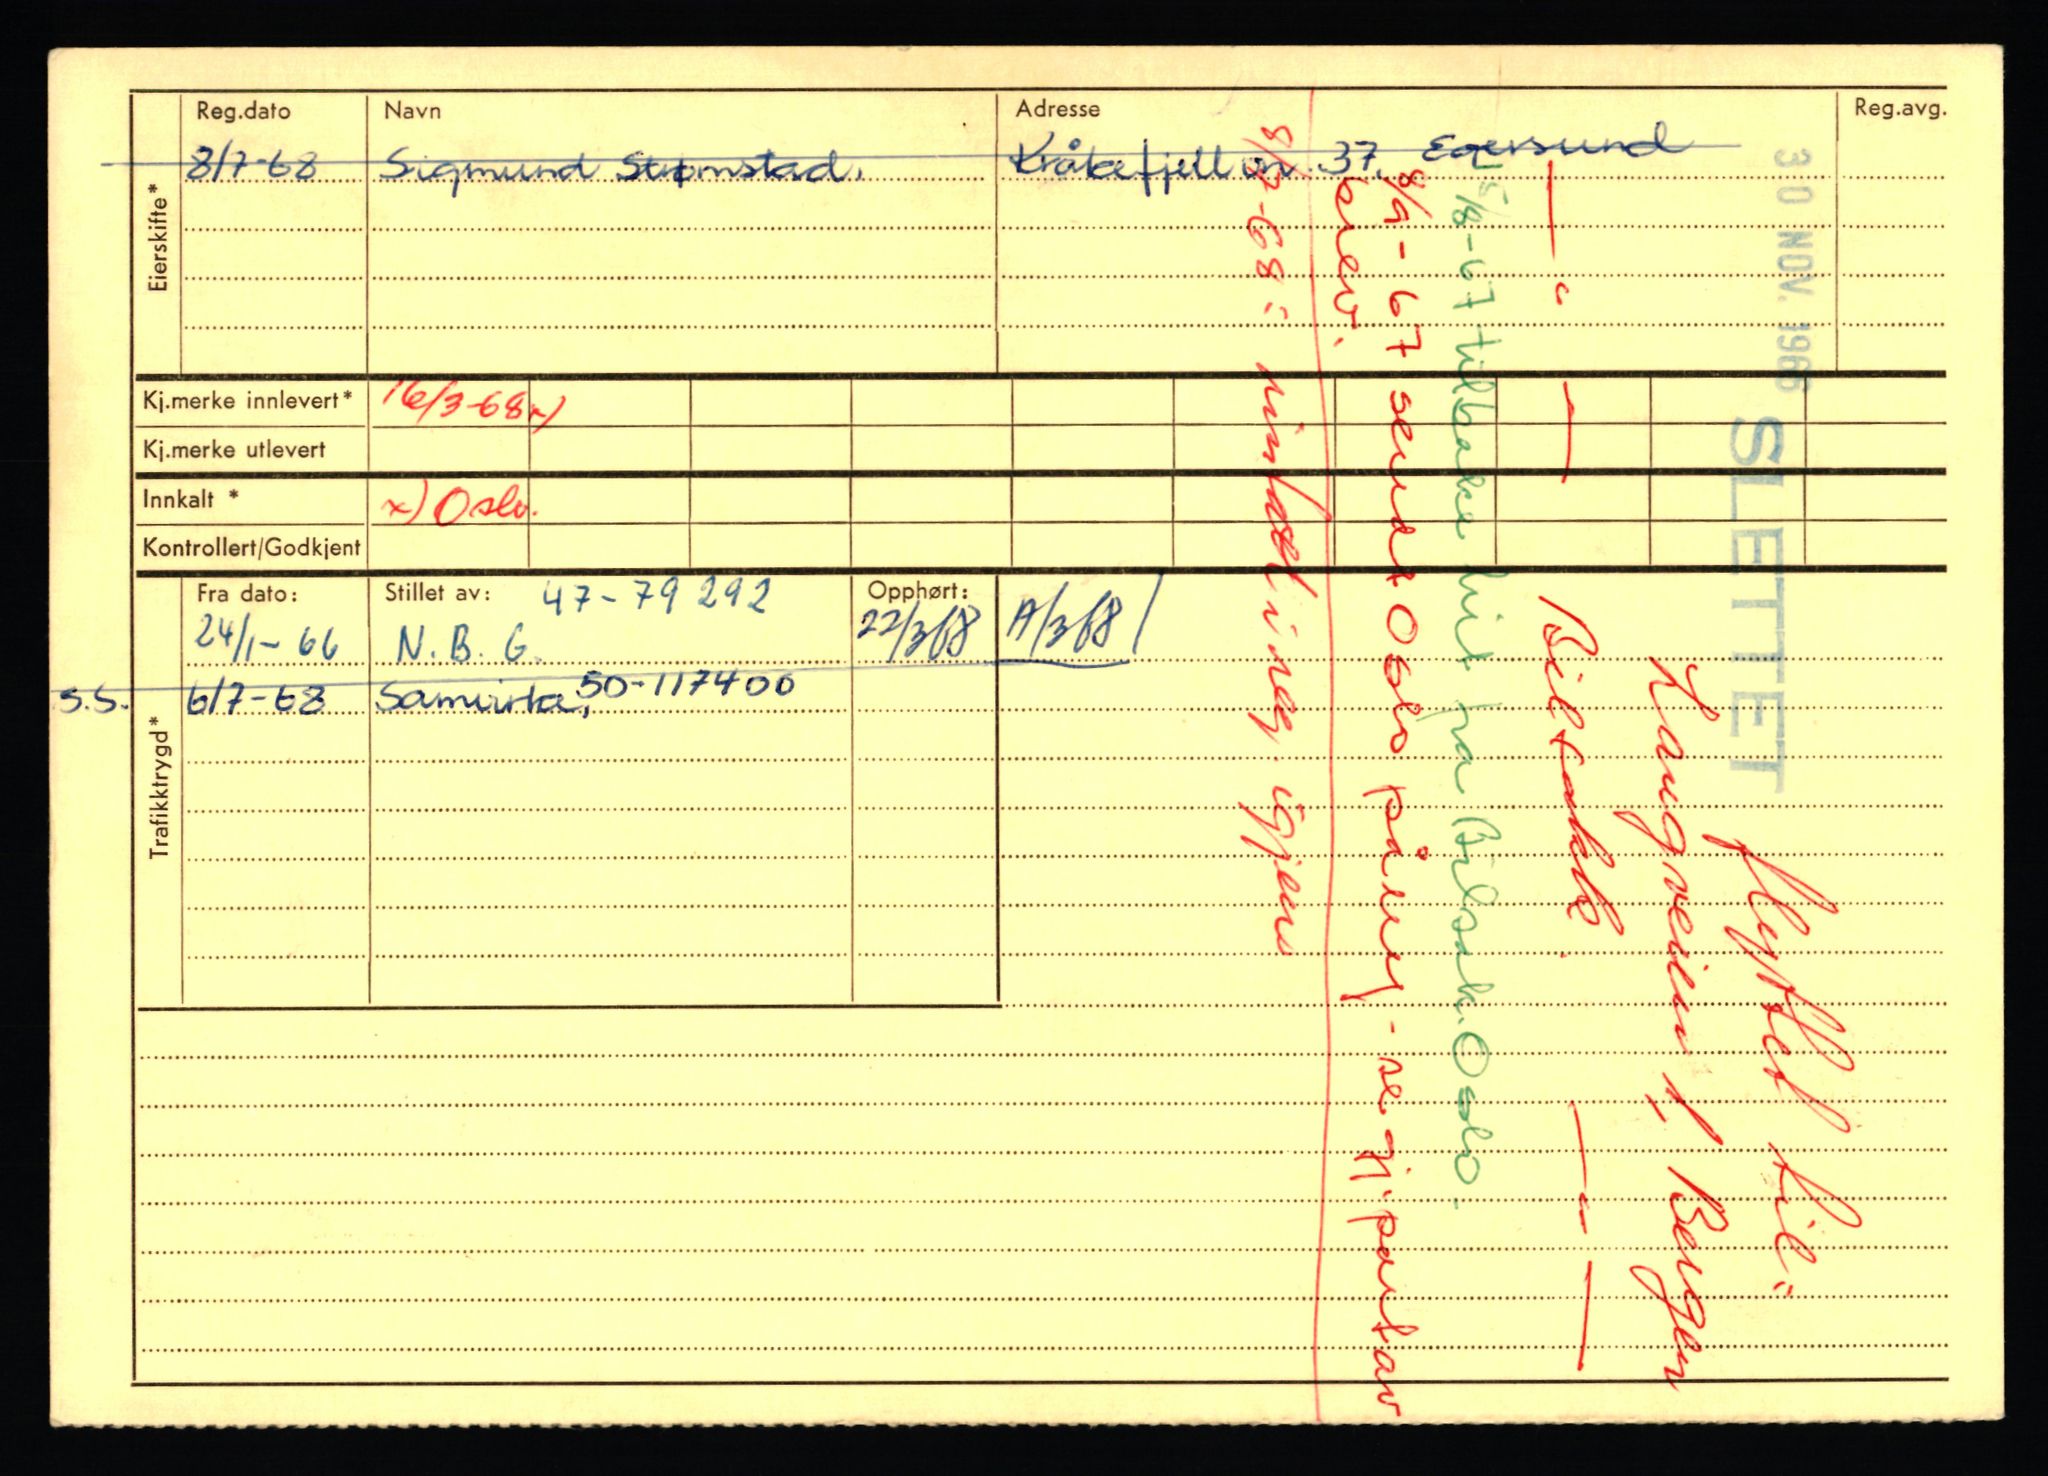 Reg.dato Navn Adresse Reg.avg.
8/7-68 Sigmund Strømstad. Kråkefjellvn. 37. Egersund
Eierskifte*
Kj.merke innlevert* 16/3-68 x)
Kj.merke utlevert
Innkalt * x) Oslo.
Kontrollert/Godkjent
Fra dato: Stillet av: 47-79292 Opphørt:
24/1-66 N.B.G. 22/3 68 A/3 68
S.S. 6/7-68 Samvirke, 50-117400
Trafikktrygd*
30 NOV. 1966 SLETTET
flyttet til
Haugveien 1, Bergen
— " — Bilsakk. — " —
15/8-67 tilbake hit fra Bilsak. Oslo.
8/9-67 sendt Oslo påny - se gj.part av
brev.
8/7-68: innført i reg. igjen